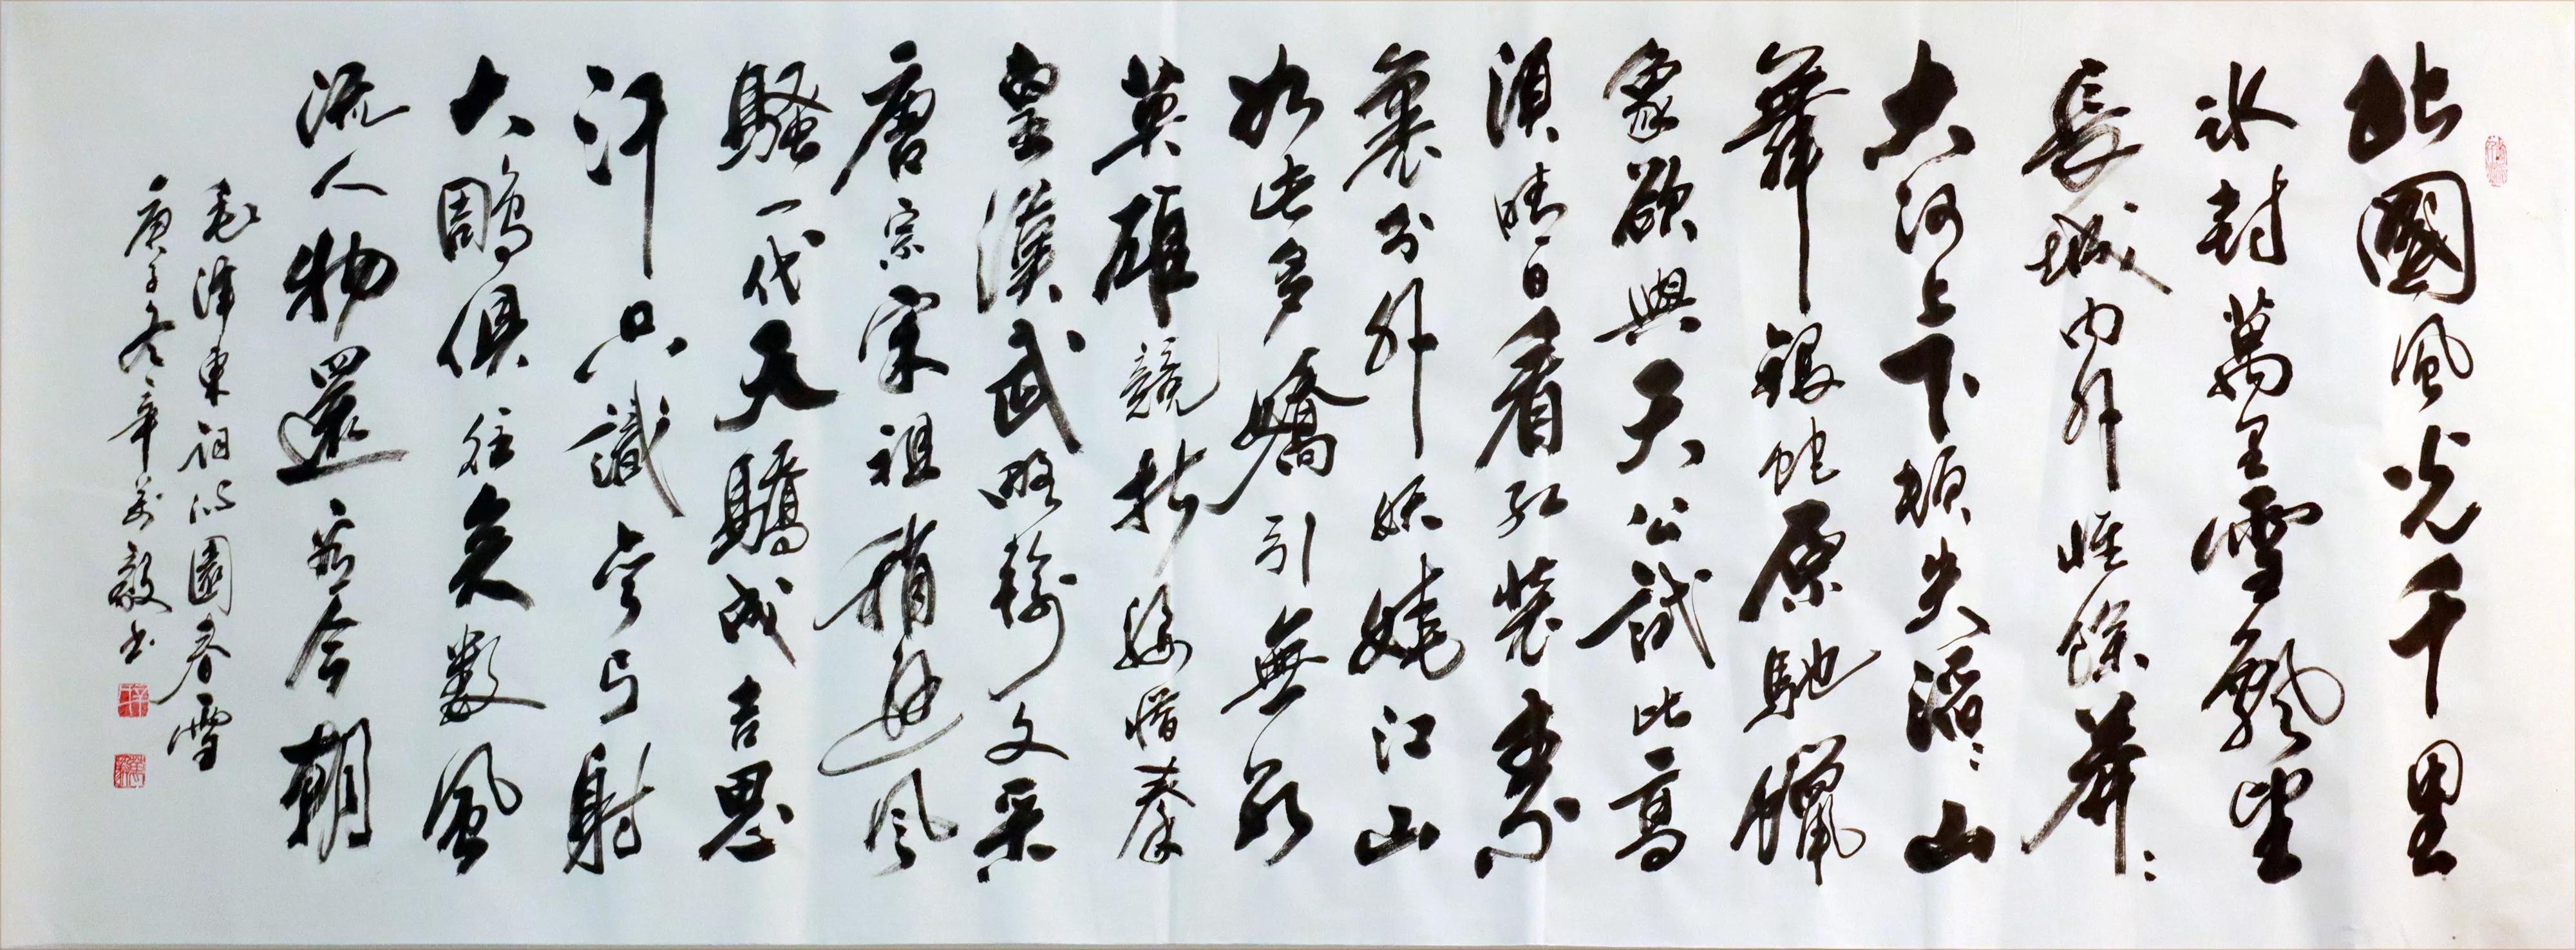 北國風光千里
冰封萬里雪飄望
長城内外惟餘莽〻
大河上下頓失滔〻山
舞銀蛇原馳臘
象欲與天公試比高
須晴日看紅裝素
裹分外妖嬈江山
如此多嬌引無數
英雄競折腰惜秦
皇漢武略輸文采
唐宗宋祖稍遜風
騷一代天驕成吉思
汗只識彎弓射
大鵰俱往矣數風
流人物還看今朝
毛澤東詞沁園春雪
庚子冬辛万毅书